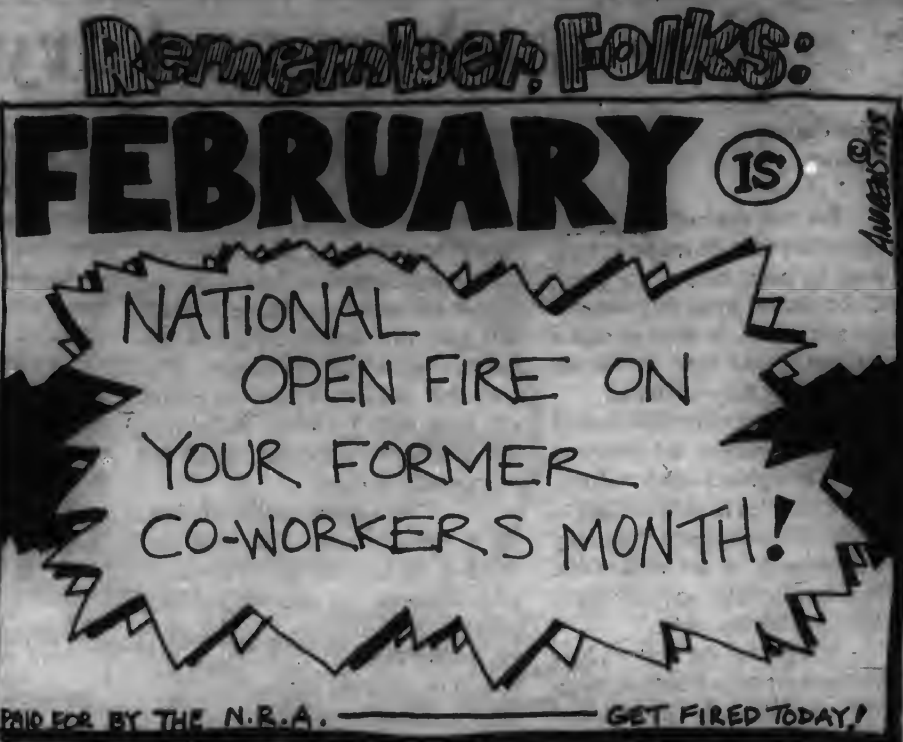 Remember, Folks:
FEBRUARY IS
NATIONAL
OPEN FIRE ON
YOUR FORMER
CO-WORKERS MONTH!
PAID FOR BY THE N.R.A. GET FIRED TODAY!